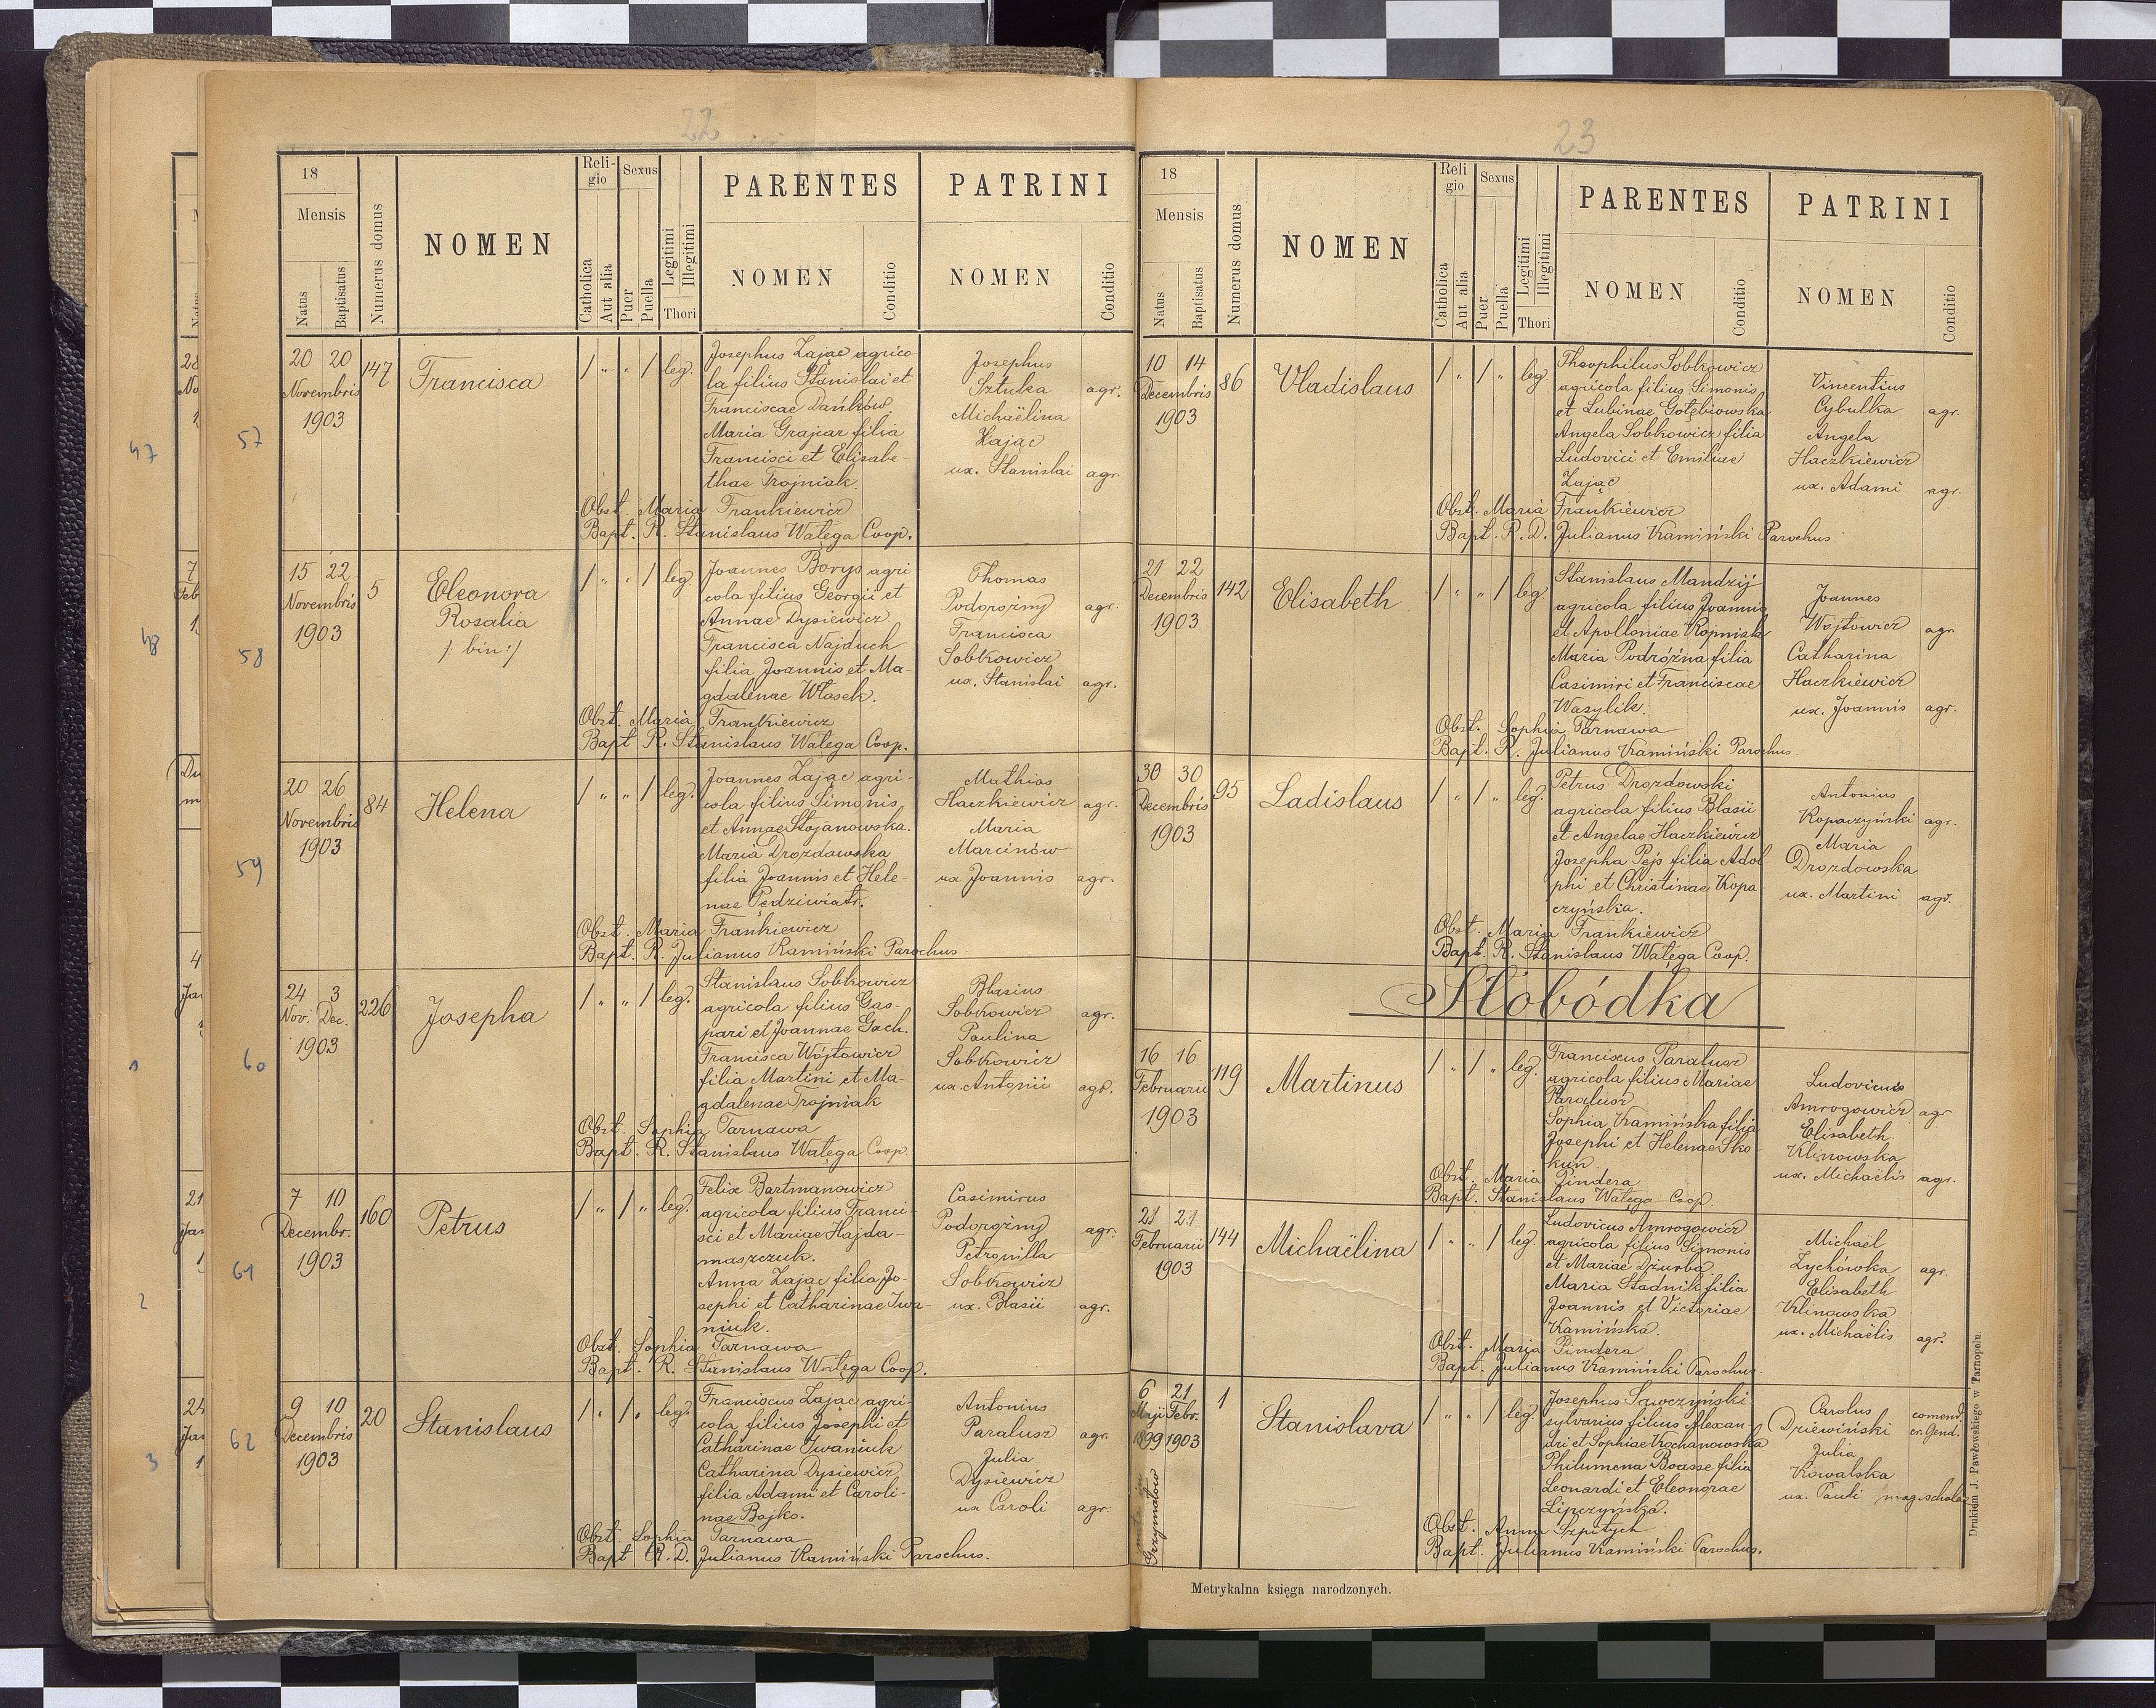 22
18
Mensis
Natus
Baptisatus
Numerus domus
NOMEN
Reli-
gio
Catholica
Aut alia
Sexus
Puer
Puella
Legitimi
Illegitimi
Thori
PARENTES
NOMEN
Conditio
PATRINI
NOMEN
Conditio
57
20 20
Novembris
1903
147
Francisca
/ " " / leg.
Josephus Zając agrico-
la filius Stanislai et
Franciscae Dańków.
Maria Grajcar filia
Francisci et Elisabe-
thae Trojniak.
Josephus
Sztuka agr.
Michaëlina
Zając
ux. Stanislai agr.
Obst. Maria Frankiewicz
Bapt. R. Stanislaus Watęga Coop.
58
15 22
Novembris
1903
5
Eleonora
Rosalia
/: bin :/
/ " " / leg.
Joannes Borys agri
cola filius Georgii et
Annae Dysiewicz.
Francisca Najduch
filia Joannis et Ma-
gdalenae Własek.
Thomas
Podorożny agr.
Francisca
Sobkowicz
ux. Stanislai agr.
Obst. Maria Frankiewicz
Bapt. R. Stanislaus Watęga Coop.
59
20 26
Novembris
1903
84
Helena
/ " " / leg.
Joannes Zając agri-
cola filius Simonis
et Annae Stojanowska.
Maria Drozdowska
filia Joannis et Hele-
nae Pędziwiatr.
Mathias
Haczkiewicz agr.
Maria
Marcinów
ux Joannis agr.
Obst. Maria Frankiewicz
Bapt. R. Julianus Kamiński Parochus.
60
24 3
Nov. Dec.
1903
226
Josepha
/ " " / leg.
Stanislaus Sobkowicz
agricola filius Gas-
pari et Joannae Gach.
Francisca Wójtowicz
filia Martini et Ma-
gdalenae Trojniak
Blasius
Sobkowicz agr.
Paulina
Sobkowicz
ux. Antonii agr.
Obst. Sophia Tarnawa
Bapt. R. Stanislaus Watęga Coop.
61
7 10
Decembr.
1903
160
Petrus
/ " / " leg.
Felix Bartmanowicz
agricola filius Franci-
sci et Mariae Hajda-
maszczuk.
Anna Zając filia Jo-
sephi et Catharinae Iwa-
niuk.
Casimirus
Podorożny agr.
Petronilla
Sobkowicz
ux. Blasii agr.
Obst. Sophia Tarnawa
Bapt. R. Stanislaus Watęga Coop.
62
9 10
Decembris
1903
20
Stanislaus
/ " / " leg.
Franciscus Zając agri-
cola filius Josephi et
Catharinae Iwaniuk
Catharina Dysiewicz
filia Adami et Caroli-
nae Bojko.
Antonius
Paralusz agr.
Julia
Dysiewicz
ux Caroli agr.
Obst. Sophia Tarnawa
Bapt. R. D. Julianus Kamiński Parochus.
23
18
Mensis
Natus
Baptisatus
Numerus domus
NOMEN
Reli
gio
Catholica
Aut alia
Sexus
Puer
Puella
Legitimi
Illegitimi
Thori
PARENTES
NOMEN
Conditio
PATRINI
NOMEN
Conditio
10 14
Decembris
1903
86
Vladislaus
/ " / " leg.
Theophilus Sobkowicz
agricola filius Simonis
et Lubinae Gołębiowska
Angela Sobkowicz filia
Ludovici et Emiliae
Zając
Vincentius
Cybulka agr.
Angela
Haczkiewicz
ux. Adami agr.
Obst. Maria Frankiewicz
Bapt. R. D. Julianus Kamiński Parochus.
21 22
Decembris
1903
142
Elisabeth
/ " " / leg
Stanislaus Mandzij
agricola filius Joannis
et Apolloniae Kopniak
Maria Podróżna filia
Casimiri et Franciscae
Wasylik.
Joannes
Wojtowicz agr
Catharina
Haczkiewicz
ux. Joannis agr.
Obst. Sophia Tarnawa
Bapt. R. Julianus Kamiński Parochus.
30 30
Decembris
1903
95
Ladislaus
/ " / " leg.
Petrus Drozdowski
agricola filius Blasii
et Angelae Haczkiewicz
Josepha Pejs filia Adol-
phi et Christinae Kopa-
czyńska.
Antonius
Kopaczyński agr.
Maria
Drozdowska
ux. Martini agr.
Obst. Maria Frankiewicz
Bapt. R. Stanislaus Watęga Coop.
Słobódka
16 16
Februarii
1903
119
Martinus
/ " / " leg.
Franciscus Paralusz
agricola filius Mariae
Paralusz
Sophia Kamińska filia
Josephi et Helenae Sko-
kun.
Ludovicus
Amrogowicz agr
Elisabeth
Klinowska
ux. Michaëlis agr.
Obst. Maria Pindera
Bapt. Stanislaus Watęga Coop.
21 21
Februarii
1903
144
Michaëlina
/ " " / leg.
Ludovicus Amrogowicz
agricola filius Simonis
et Mariae Dziurba
Maria Stadnik filia
Joannis et Victoriae
Kamińska.
Michael
Zychówka agr.
Elisabeth
Klinowska
ux. Michaëlis agr.
Obst. Maria Pindera
Bapt. Julianus Kamiński Parochus.
6 21
Maji Febr.
1899 1903
Grzymałów
1
Stanislava
/ " " / leg.
Josephus Sawczyński
sylvarius filius Alexan-
dri et Sophiae Kochanowska
Philumena Boasse filia
Leonardi et Eleonorae
Lipczyńska.
Carolus comend.
Dziewiński cr. Gend.
Julia
Kowalska
ux. Pauli mag. scholae
Obst. Anna Szpitych
Bapt. Julianus Kamiński Parochus.
Metrykalna księga narodzonych.
Drukiem J. Pawłowskiego w Tarnopolu.